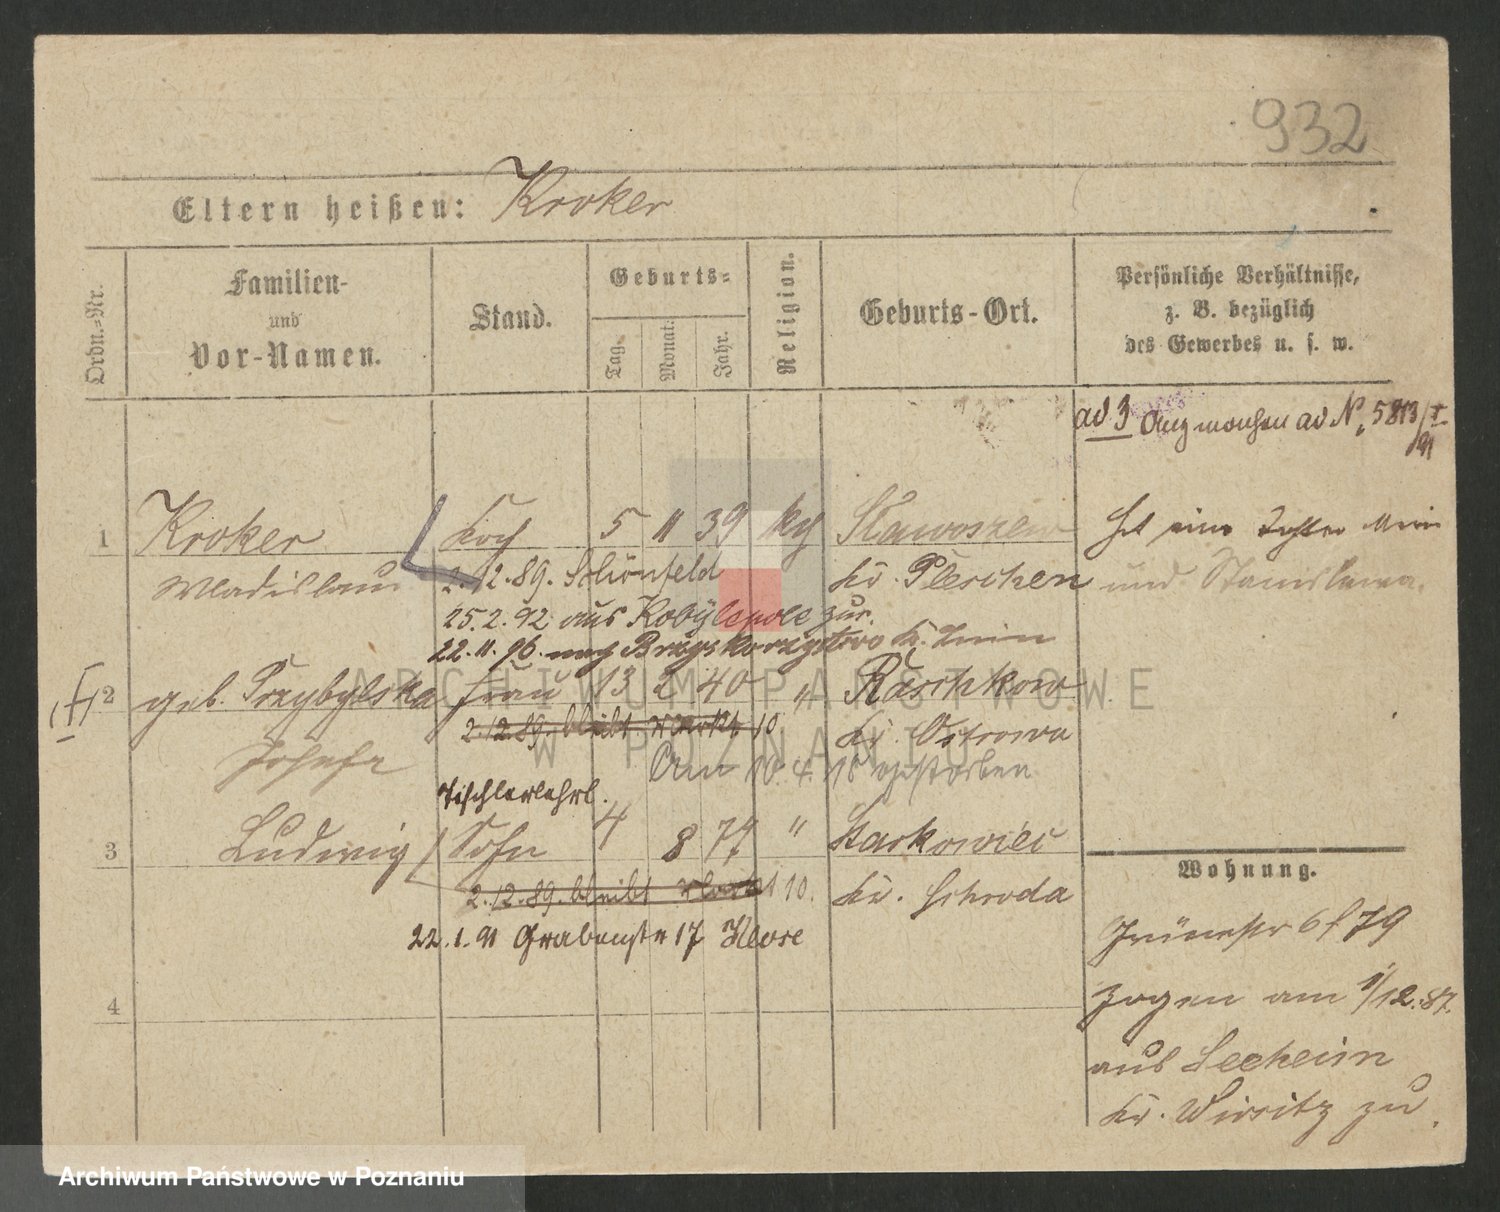 932
Eltern heißen: Kroker
Ordn.-Nr.
Familien-
und
Vor-Namen.
Stand.
Geburts-
Tag.
Monat.
Jahr.
Religion.
Geburts-Ort.
Persönliche Verhältnisse,
z. B. bezüglich
des Gewerbes u. s. w.
ad 3 ad N. 5813/I
91
1 Kroker Koch 5 11 39 kth Slawoszew
Wladislaus 2.12.89. Schönfeld Kr. Pleschen und Stanislawa.
25.2.92 aus Kobylepole zur.
22.11.96. nach
2 geb. Przybylska Frau 13 2 40 " Raschkow
Josefa 2.12.89. bleibt 10 Kr. Ostrowo
Am 10.4.18 verstorben
Tischlerlehrl.
3 Ludwig Sohn 4 8 77 " Siekowiec
2.12.89. bleibt 10. Kr. Schroda
22.1.91 Grabenstr 17 Klose
4
Wohnung.
79
zogen am 1/12.87.
aus Seeheim
Kr. Wirsitz zu.
ARCHIWUM PAŃSTWOWE
W POZNANIU
Archiwum Państwowe w Poznaniu